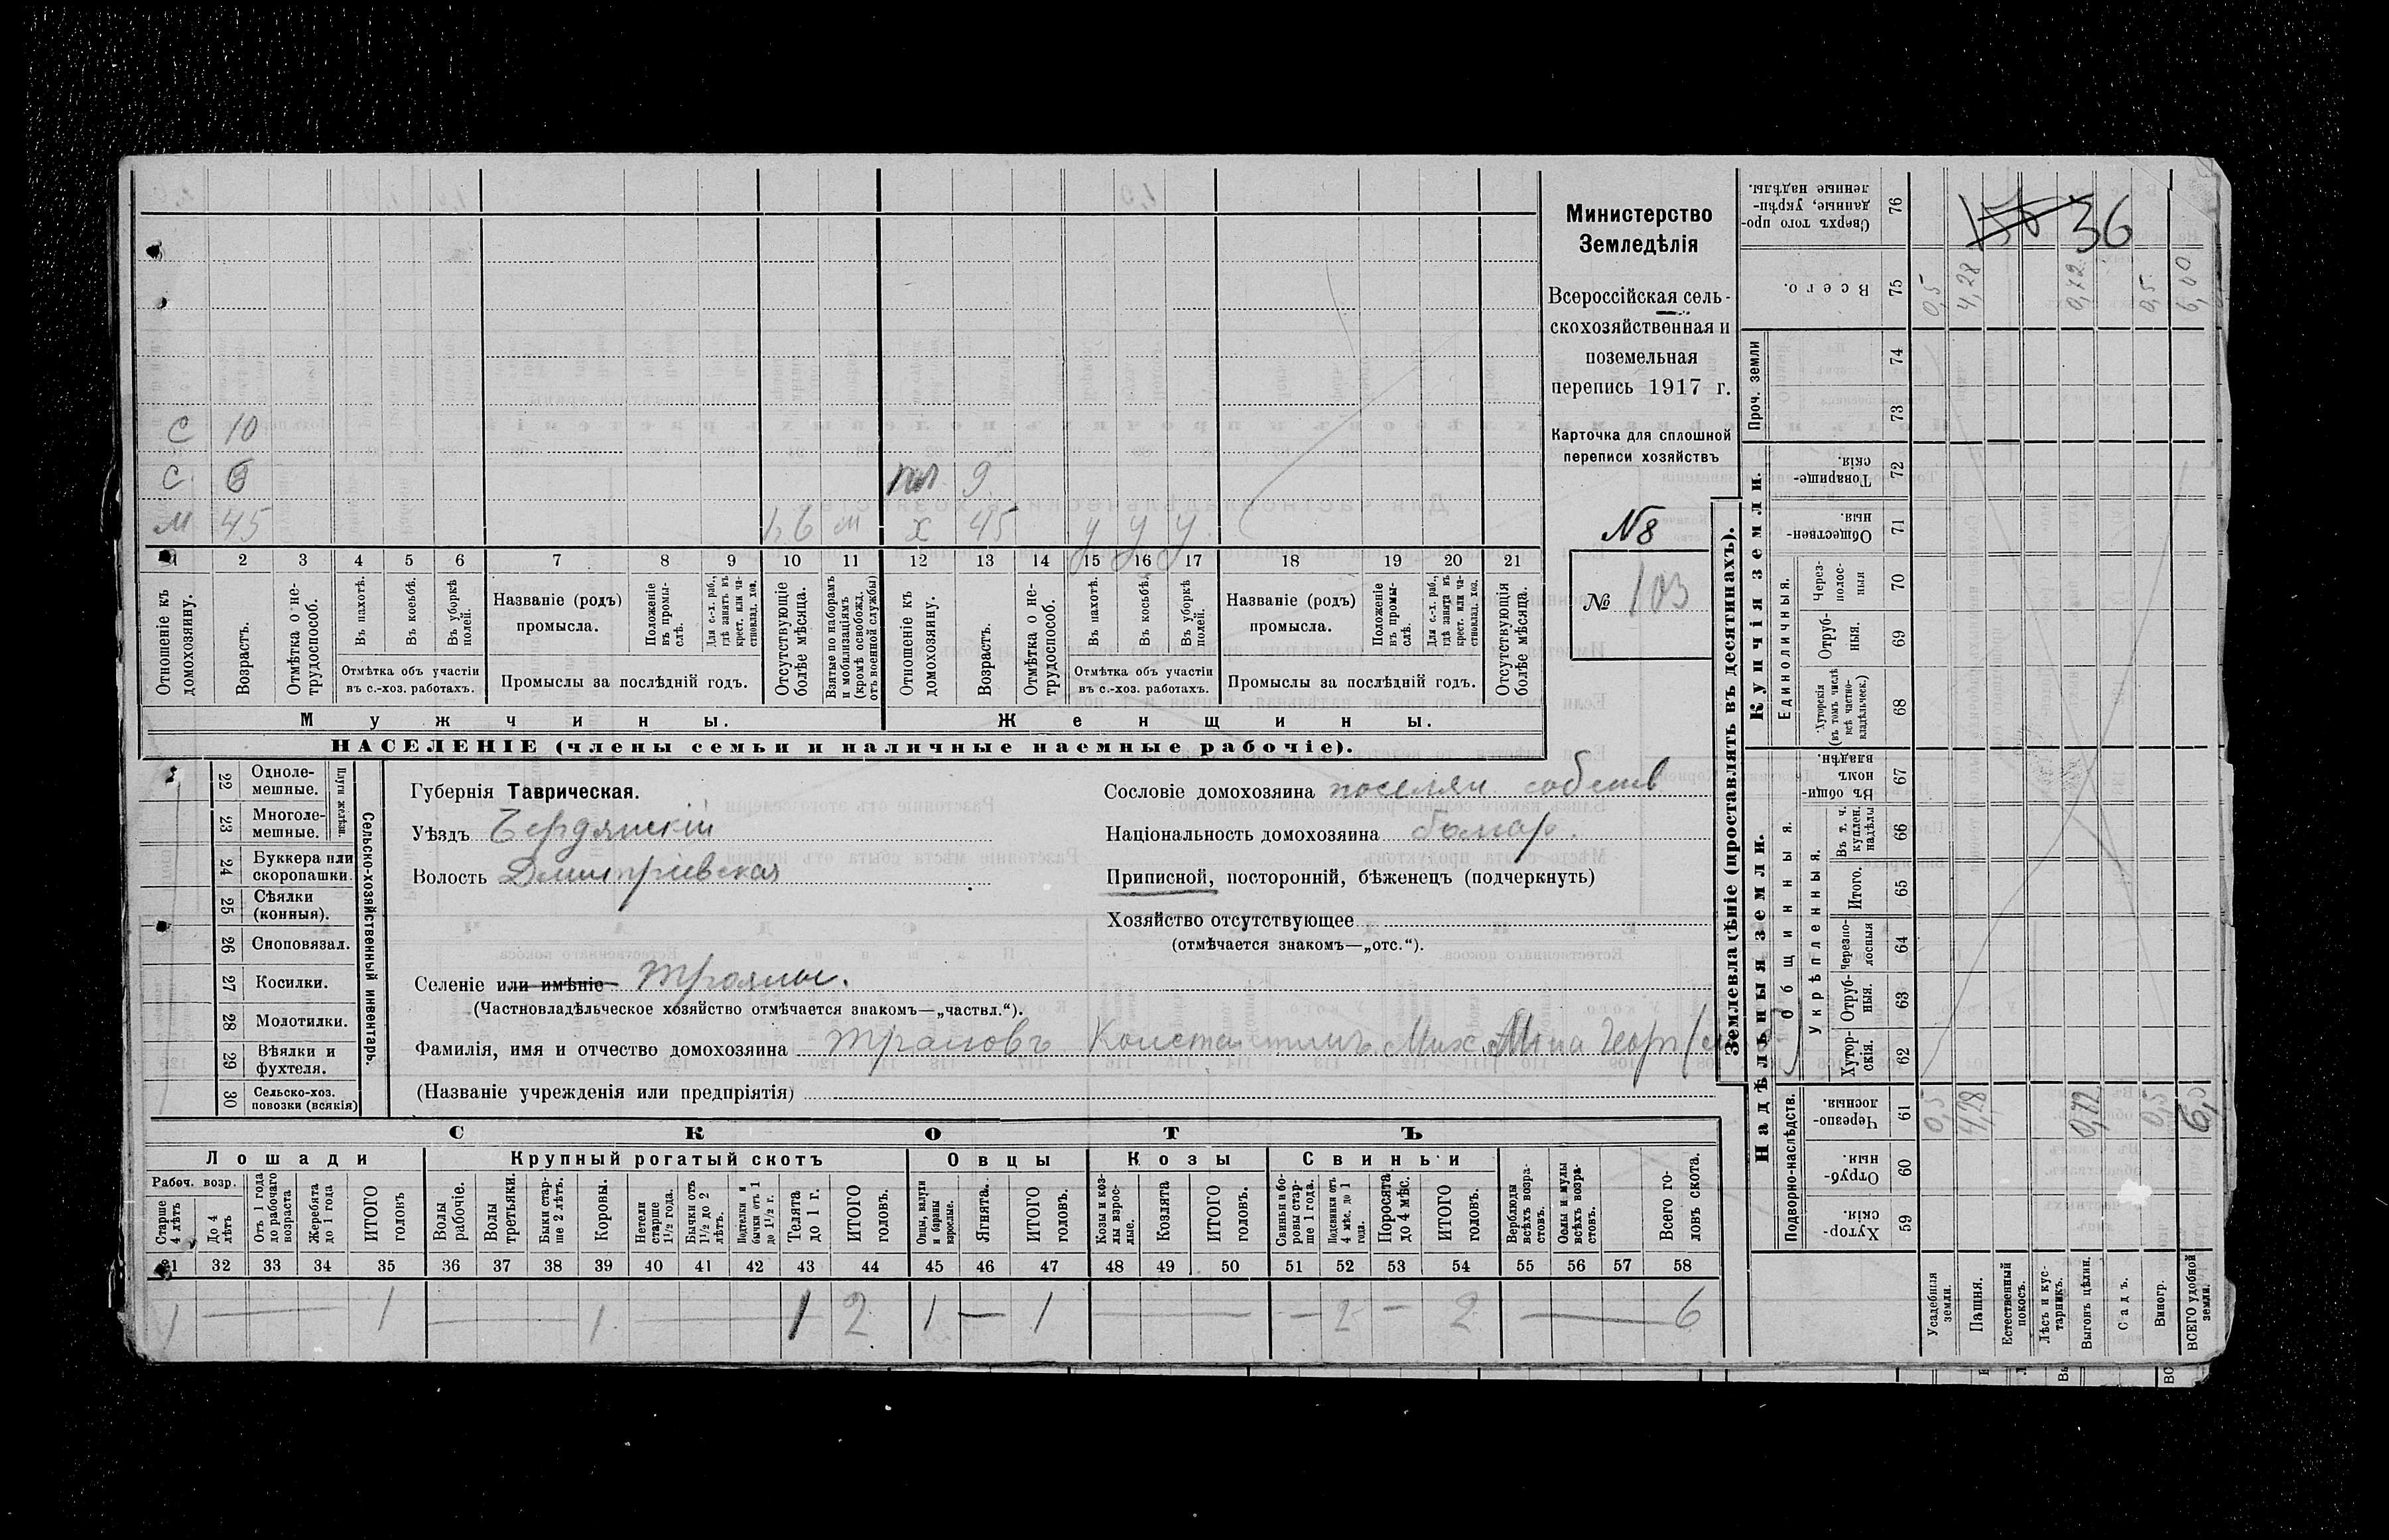 Министерство
Земледѣлія
Всероссійская сель-
скохозяйственная и
поземельная
перепись 1917 г.
Карточка для сплошной
переписи хозяйствъ
№ 8
№ 103
С 10
С
пл 9
М 45 м х 45 у у у
1 2 3 4 5 6 7 8 9 10 11 12 13 14 15 16 17 18 19 20 21
Отношеніе къ домохозяину.
Возрастъ.
Отмѣтка о не-трудоспособ.
Въ пахотѣ.
Въ косьбѣ.
Въ уборкѣ полей.
Отмѣтка объ участіи
въ с.-хоз. работахъ.
Названіе (родъ)
промысла.
Положеніе въ промы-слѣ.
Для с.-х. раб., гдѣ занятъ въ крест. или ча-стновлад. хоз.
Промыслы за послѣдній годъ.
Отсутствующіе болѣе мѣсяца.
Взятые по наборамъ и мобилизаціямъ (кромѣ освобожд. отъ военной службы)
Отношеніе къ домохозяину.
Возрастъ.
Отмѣтка о не-трудоспособ.
Въ пахотѣ.
Въ косьбѣ.
Въ уборкѣ полей.
Отмѣтка объ участіи
въ с.-хоз. работахъ.
Названіе (родъ)
промысла.
Положеніе въ промы-слѣ.
Для с.-х. раб., гдѣ занята въ крест. или ча-стновлад. хоз.
Промыслы за послѣдній годъ.
Отсутствующія болѣе мѣсяца.
Мужчины.
Женщины.
НАСЕЛЕНІЕ (члены семьи и наличные наемные рабочіе).
22 Одноле-мешные.
23 Многоле-мешные.
Плуги желѣзн.
24 Буккера или скоропашки.
25 Сѣялки (конныя).
26 Сноповязал.
27 Косилки.
28 Молотилки.
29 Вѣялки и фухтеля.
30 Сельско-хоз. повозки (всякія)
Сельско-хозяйственный инвентарь.
Губернія Таврическая.
Уѣздъ Бердянскій
Волость Дмитріевская
Сословіе домохозяина поселян собств
Національность домохозяина болгар.
Приписной, посторонній, бѣженецъ (подчеркнуть)
Хозяйство отсутствующее
(отмѣчается знакомъ—„отс.“).
Селеніе или имѣніе Трояны.
(Частновладѣльческое хозяйство отмѣчается знакомъ—„частвл.“).
Фамилія, имя и отчество домохозяина Трановъ Константинъ Мих.
(Названіе учрежденія или предпріятія)
СКОТЪ
Лошади
Крупный рогатый скотъ
Овцы
Козы
Свиньи
Рабоч. возр.
Старше 4 лѣтъ
До 4 лѣтъ
Отъ 1 года до рабочаго возраста
Жеребята до 1 года
ИТОГО головъ
Волы рабочіе.
Волы третьяки.
Быки стар-ше 2 лѣтъ.
Коровы.
Нетели старше 1½ года.
Бычки отъ 1½ до 2 лѣтъ.
Подтелки и бычки отъ 1 до 1½ г.
Телята до 1 г.
ИТОГО головъ.
Овцы, валухи и бараны взрослые.
Ягнята.
ИТОГО головъ.
Козы и коз-лы взрос-лые.
Козлята
ИТОГО головъ.
Свиньи и бо-ровы стар-ше 1 года.
Подсвинки отъ 4 мѣс. до 1 года.
Поросята до 4 мѣс.
ИТОГО головъ.
Верблюды всѣхъ возра-стовъ.
Ослы и мулы всѣхъ возра-стовъ.
Всего го-ловъ скота.
31 32 33 34 35 36 37 38 39 40 41 42 43 44 45 46 47 48 49 50 51 52 53 54 55 56 57 58
1 — 1 — 1 — 1 2 1 — 1 — — 2 — 2 — 6
Землевладѣніе (проставлять въ десятинахъ).
Надѣльныя земли.
Купчія земли.
Проч. земли
Подворно-наслѣдств.
Общинныя.
Укрѣпленныя.
Единоличныя.
Хутор-скія. 59
Отруб-ныя. 60
Черезпо-лосныя. 61
Хутор-скія. 62
Отруб-ныя. 63
Черезпо-лосныя 64
Итого. 65
Въ т. ч. куплен. надѣлы 66
Въ общи-номъ владѣн. 67
Хуторскія (въ томъ числѣ всѣ частно-владѣльческ.) 68
Отруб-ныя. 69
Через-полос-ныя 70
Обществен-ныя. 71
Товарище-скія. 72
73
74
Всего. 75
Сверхъ того про-данные, укрѣп-ленные надѣлы. 76
36
0,5 4,28 0,72 0,5 6,0
0,5 4,28 0,72 0,5 6,0
Усадебныя земли.
Пашня.
Естественный покосъ.
Лѣсъ и кус-тарникъ.
Выгонъ цѣлин.
Садъ.
Виногр.
ВСЕГО удобной земли.